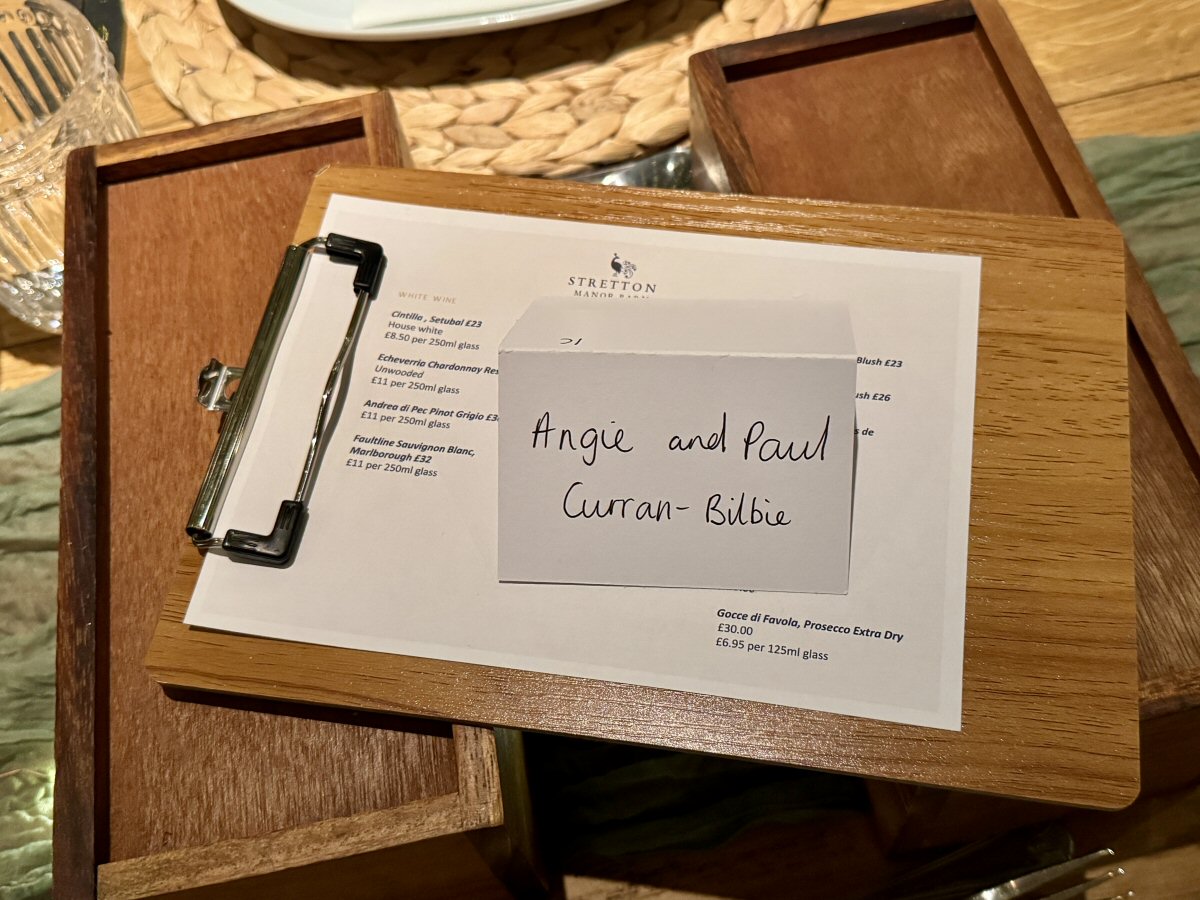 STRETTON
MANOR BARN
WHITE WINE
Cintilla , Setubal £23
House white
£8.50 per 250ml glass
Echeverria Chardonnay
Unwooded
£11 per 250ml glass
Andrea di Pec Pinot Grigio
£11 per 250ml glass
Faultline Sauvignon Blanc,
Marlborough £32
£11 per 250ml glass
Blush £23
£26
de
Angie and Paul
Curran-Bilbie
Gocce di Favola, Prosecco Extra Dry
£30.00
£6.95 per 125ml glass